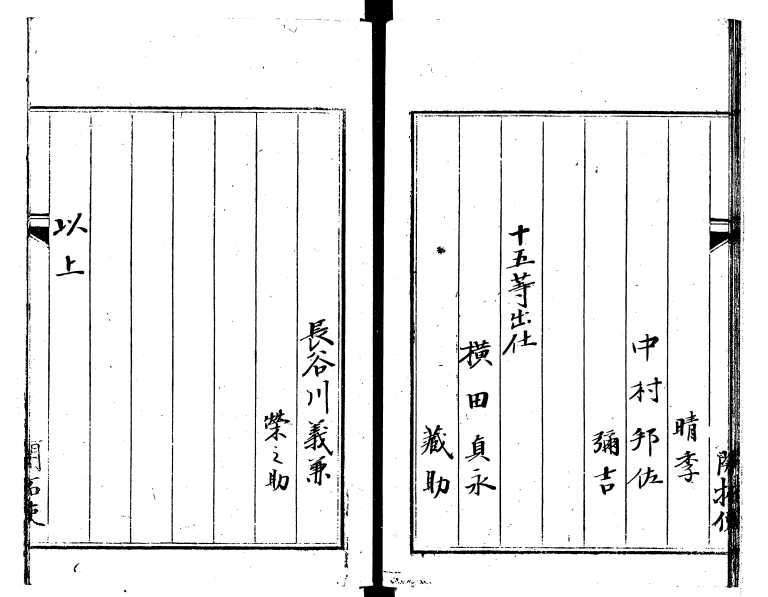 晴季
中村邦佐
彌吉
十五等出仕
横田真永
藏助
長谷川義兼
榮之助
以上
開拓使